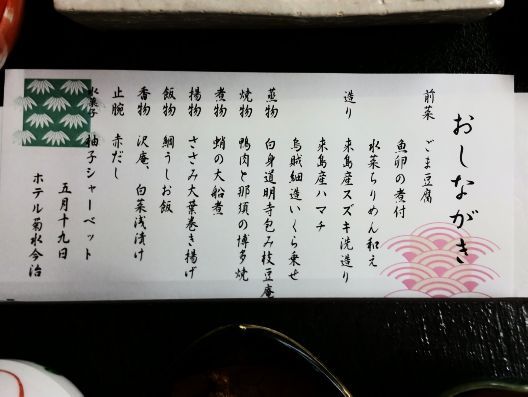 おしながき
前菜 ごま豆腐
魚卵の煮付
水菜ちりめん和え
造り 来島産スズキ洗造り
来島産ハマチ
烏賊細造いくら乗せ
蒸物 白身道明寺包み枝豆庵
焼物 鴨肉と那須の博多焼
煮物 蛸の大船煮
揚物 ささみ大葉巻き揚げ
飯物 鯛うしお飯
香物 沢庵、白菜浅漬け
止腕 赤だし
水菓子 柚子シャーベット
五月十九日
ホテル菊水今治